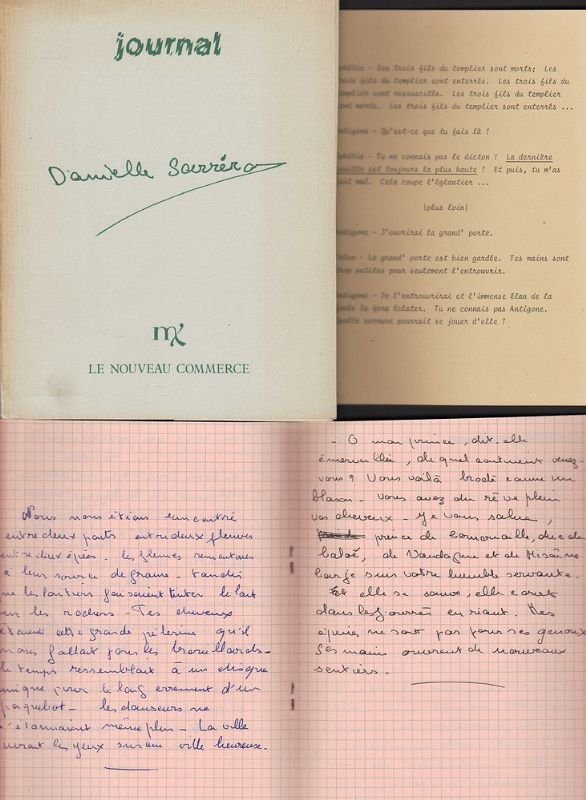 journal
Danielle Sarréra
LE NOUVEAU COMMERCE
Ophélie - Les trois fils du templier sont morts; Les
trois fils du templier sont enterrés. Les trois fils du
templier sont ressuscités. Les trois fils du templier
sont morts. Les trois fils du templier sont enterrés ...
Antigone - Qu'est-ce que tu fais là ?
Ophélie - Tu ne connais pas le dicton ? La dernière
feuille est toujours la plus haute ! Et puis, tu m'as
fait mal. Cela coupe l'églantier ...
(plus loin)
Antigone - J'ouvrirai la grand' porte.
Créon - La grand' porte est bien gardée. Tes mains sont
trop petites pour seulement l'entrouvrir.
Antigone - Je l'entrouvrirai et l'immense Elan de la
la fera éclater. Tu ne connais pas Antigone.
Quelle serrure pourrait se jouer d'elle ?
Nous nous étions rencontré
entre deux ports entre deux fleuves
entre deux épées. les fleuves remontaient
à leur source de graine - tandis
que les laitiers faisaient tinter le lait
sur les rochers - Tes cheveux
étaient cette grande pèlerine qu'il
nous fallait pour les brouillards -
le temps ressemblait à un disque
unique pour le long errement d'un
paquebot - les danseurs ne
s'étonnaient même plus - La ville
ouvrait les yeux sur une ville heureuse.
- O mon prince, dit-elle
émerveillée, de quel continent venez-
vous ? Vous voilà brodé comme un
blason - vous avez du rêve plein
vos cheveux - Je vous salue,
prince de Cornouaille, duc de
de et de
je suis votre humble servante -
Et elle se sauve, elle court
dans les fourrés en riant. Les
épines ne sont pas pour ses genoux
Ses mains ouvrent de nouveaux
sentiers -